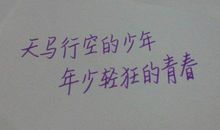 天马行空的少年
年少轻狂的青春